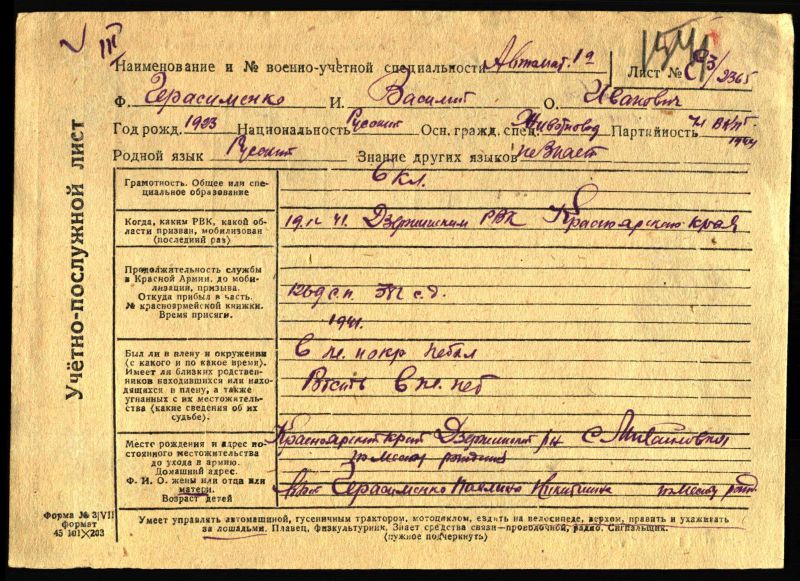 III
Наименование и № военно-учётной специальности Автомат. 1а
Лист № 3/2365
Ф. Герасименко И. Василий О. Иванович
Год рожд. 1923 Национальность Русский Осн. гражд. спец. Животновод Партийность ЧЛ ВКПб 1944
Родной язык Русский Знание других языков не знает
Учётно-послужной лист
Грамотность. Общее или спе-
циальное образование
6 кл.
Когда, каким РВК, какой об-
ласти призван, мобилизован
(последний раз)
41. Дзержинским РВК Красноярского края
Продолжительность службы
в Красной Армии, до моби-
лизации, призыва.
Откуда прибыл в часть.
№ красноармейской книжки.
Время присяги.
1269 с.п. 382 с.д.
1941.
Был ли в плену и окружении
(с какого и по какое время).
Имеет ли близких родствен-
ников находившихся или нахо-
дящихся в плену, а также
угнанных с их местожитель-
ства (какие сведения об их
судьбе).
В пл. и окр не был
в пл. нет
Место рождения и адрес по-
стоянного местожительства
до ухода в армию.
Домашний адрес.
Ф. И. О. жены или отца или
матери.
Возраст детей
Красноярский край Дзержинский р-н с. Михайловка
по месту рождения
Герасименко Никитична по месту рожд.
Форма № 3|VII
формат
45 101×203
Умеет управлять автомашиной, гусеничным трактором, мотоциклом, ездить на велосипеде, верхом, править и ухаживать
за лошадьми. Пловец, физкультурник. Знает средства связи—проволочной, радио. Сигнальщик.
(нужное подчеркнуть)